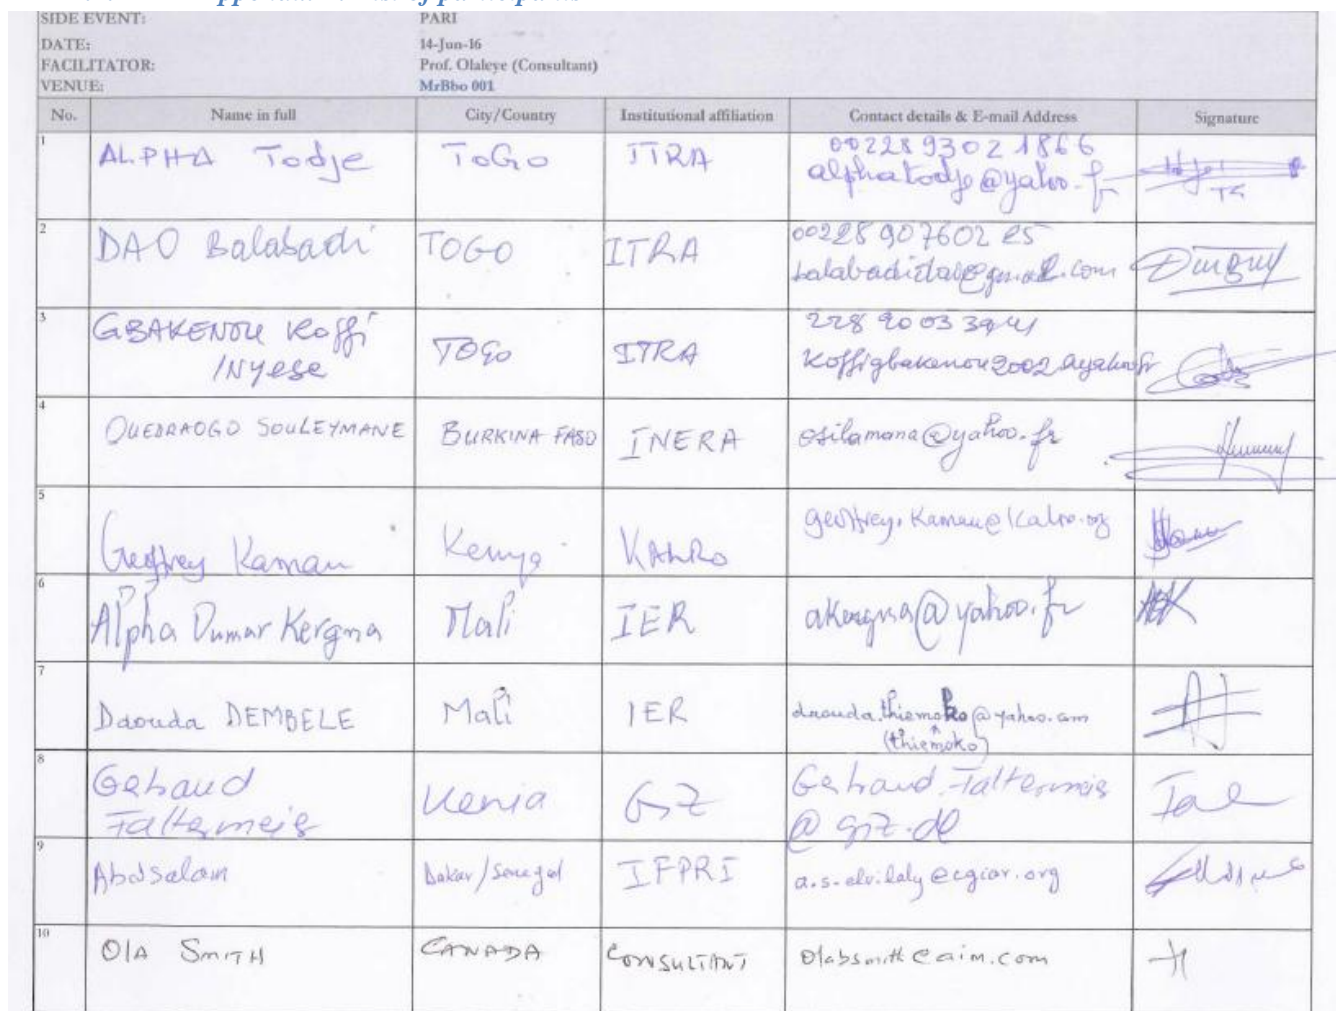 SIDE EVENT: PARI
DATE: 14-Jun-16
FACILITATOR: Prof. Olaleye (Consultant)
VENUE: MrBbo 001
No. Name in full City/Country Institutional affiliation Contact details & E-mail Address Signature
1 ALPHA Todje ToGo ITRA 0022893021866
alphatodje@yahoo.fr
2 DAO Balabadi TOGO ITRA 0022890760225
balabadidao@gmail.com
3 GBAKENOU Koffi TOGo ITRA 228 90 03 39 41
INyese koffigbakenou2002@yahoo.fr
4 OUEDRAOGO SOULEYMANE BURKINA FASO INERA osilamana@yahoo.fr
5 Geoffrey Kamau Kenya KALRO geoffrey.kamau@kalro.org
6 Alpha Oumar Kergna Mali IER akergna@yahoo.fr
7 Daouda DEMBELE Mali IER daouda.thiemoko@yahoo.com
(thiemoko)
8 Gehaud Kenia GIZ Gehaud.Faltermeis
Faltermeis @giz.de
9 Abdsalam Dakar/Senegal IFPRI @cgiar.org
10 OlA SmITH CANADA CONSULTANT Olabsmith@aim.com